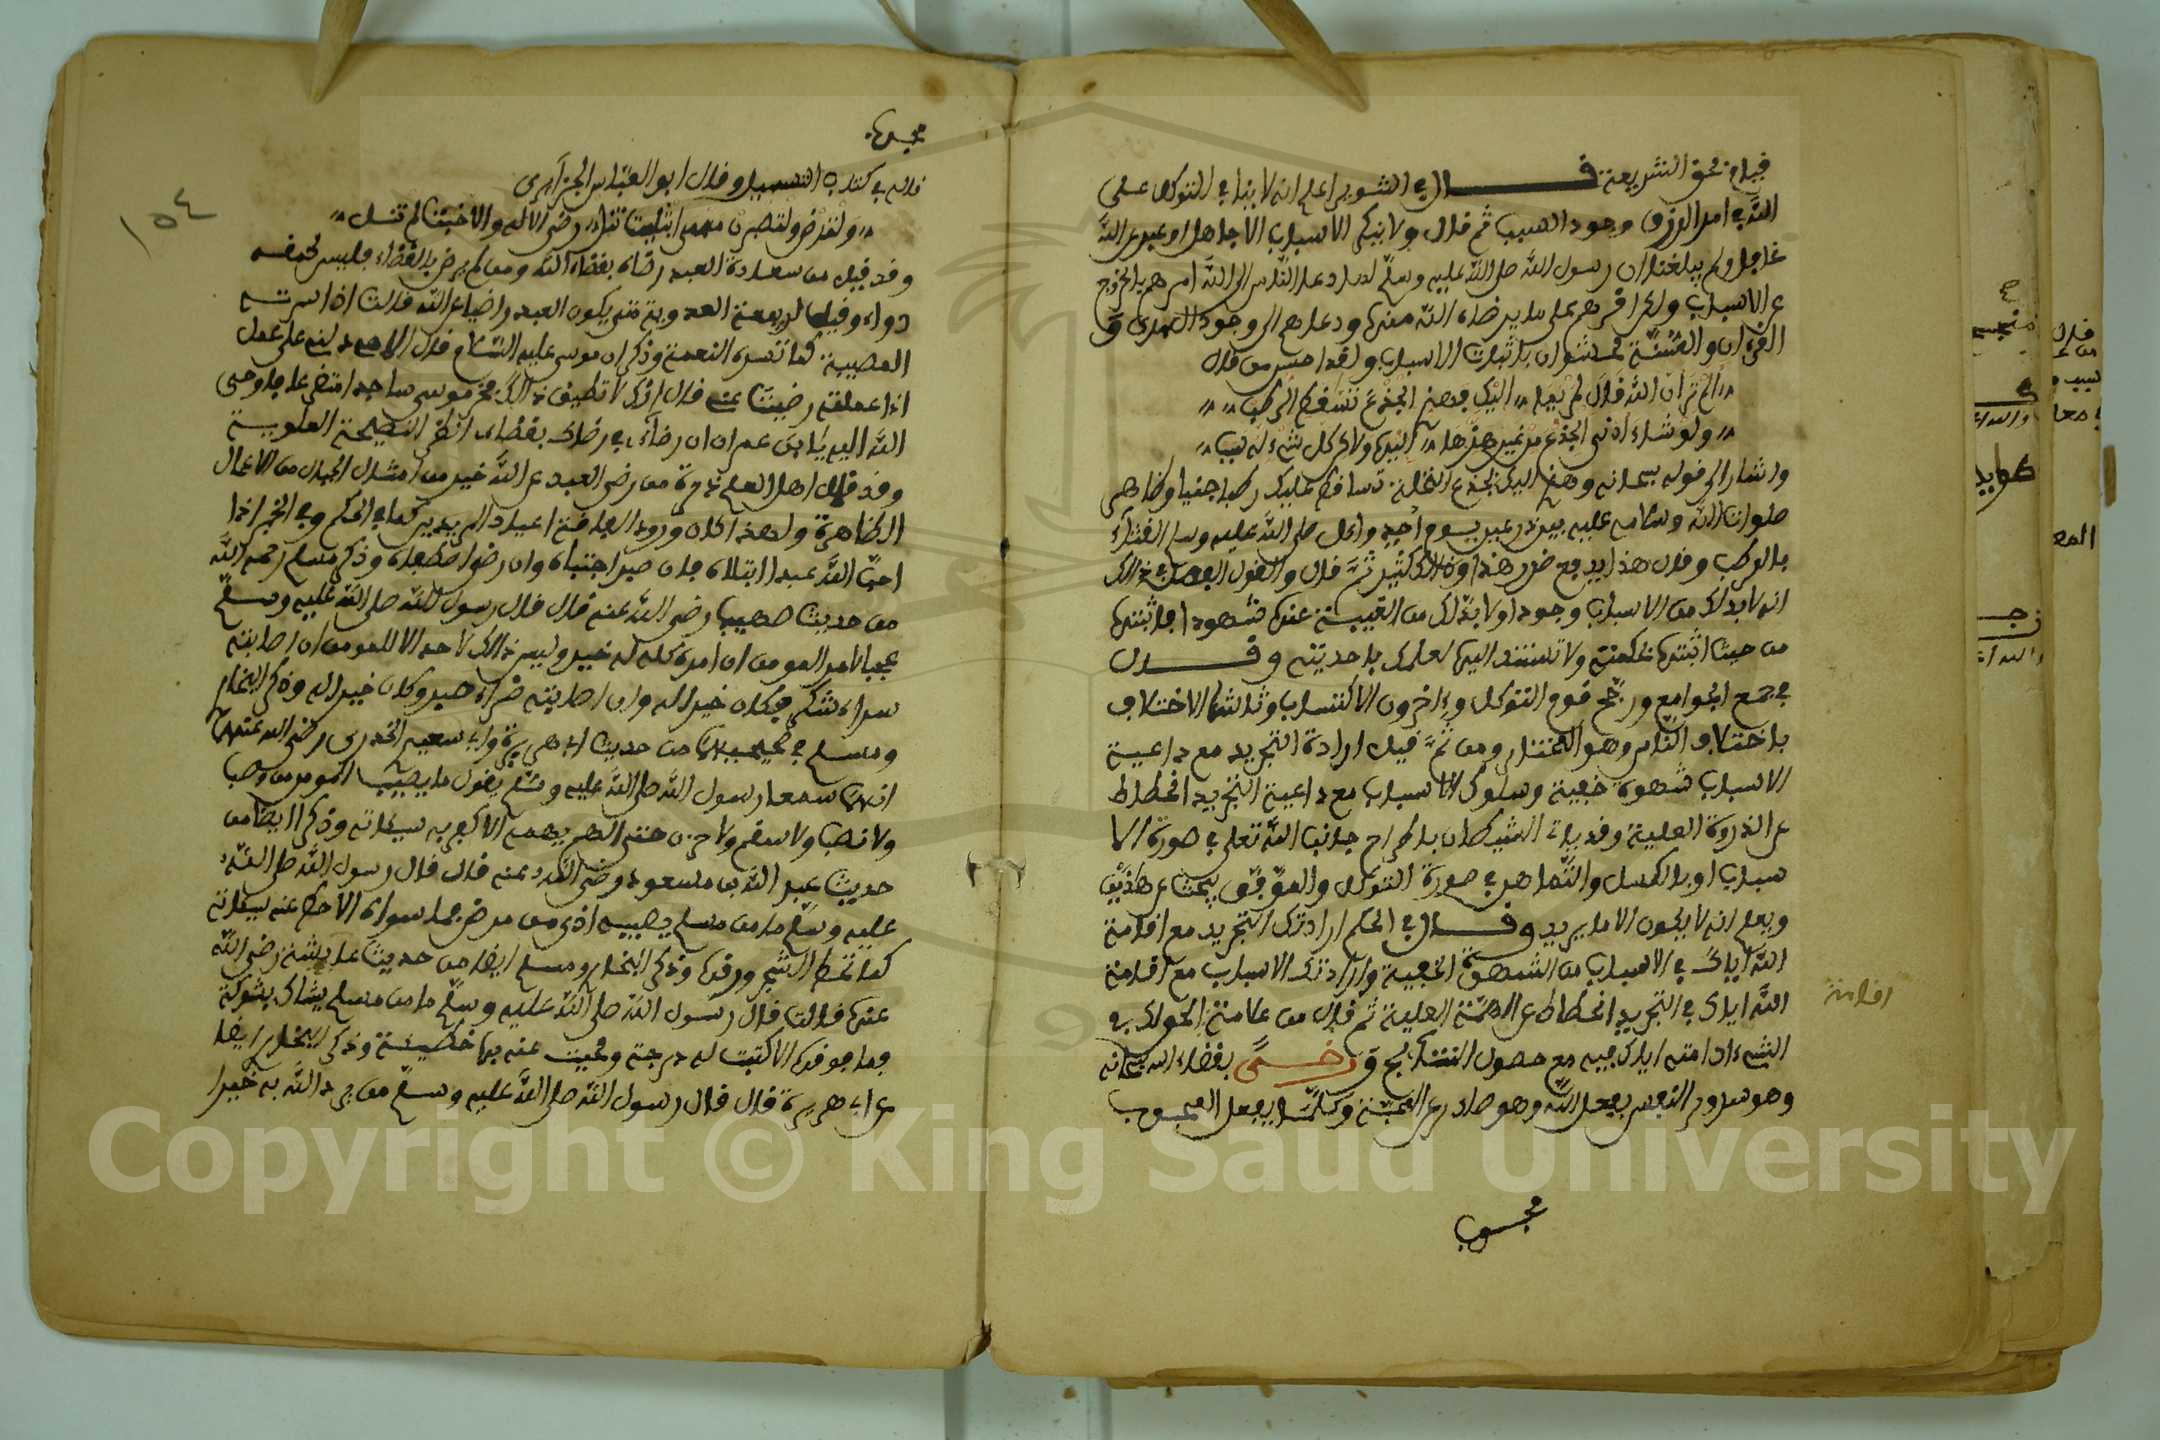 فيما في محق الشريعة قال في التنوير اعلم انه لا ينافي التوكل على
الله في امر الرزق وجود السبب ثم قال ولا ينكر الاسباب الا جاهل او عبد عن الله
غافل ولم يبلغنا ان رسول الله صلى الله عليه وسلم لما دعا الناس الى الله امرهم بالخروج
عن الاسباب وانما اقرهم على ما يرضاه الله منها ودعاهم الى وجود الهدى و
القرءان والسنة محشوان باثبات الاسباب ولقد احسن من قال
الم تر ان الله قال لمريم اليك فهزي الجذع تساقط الرطب
ولو شاء ادنى الجذع من غير هزها اليها ولاكن كل شيء له سبب
واشار الى قوله سبحانه وهزي اليك بجذع النخلة تساقط عليك رطبا جنيا وظاهر
صلوات الله وسلامه عليه بين درعين يوم احد واكل صلى الله عليه وسلم القثاء
بالرطب وقال هذا يدفع ضرر هذا وذلك كثير ثم قال والقول الفصل في ذلك
انه لا بد لك من الاسباب وجودا ولا بد لك من الغيبة عنها شهودا فاثبتها
من حيث اثبتها بحكمته ولا تستند اليها لعلمك باحديته وقال
في جمع الجوامع ورجح قوم التوكل وءاخرون الاكتساب وثالث الاختلاف
باختلاف الناس وهو المختار ومن ثم قيل ارادة التجريد مع داعية
الاسباب شهوة خفية وسلوك الاسباب مع داعية التجريد انحطاط
عن الذروة العلية وقد يات الشيطان باطراح جانب الله تعلى في صورة الا
سباب او بالكسل والتماهن في صورة التوكل والموفق يبحث عن هذين
ويعلم انه لا يكون الا ما يريد وقال في الحكم ارادتك التجريد مع اقامة
الله اياك في الاسباب من الشهوة الخفية وارادتك الاسباب مع اقامة
الله اياك في التجريد انحطاط عن الهمة العلية ثم قال من علامة اقامة الحق لك في
الشيء ادامته اياك فيه مع حصول النتائج ورضى بقضاء الله سبحانه
وهو سرور النفس بفعل الله وهو صادر عن المحبة وكلما يفعل المحبوب
محبوب
اقامة
محبوب
١٥٤
قاله في كتاب التسهيل وقال ابو العباس الجزائري
ولترض ولتصبرن مهما ابتليت تنل رضى الاله والا خبت لم تنل
وقد قيل من سعادة العبد رضاه بقضاء الله ومن لم يرض بالقضاء فليس لحمقه
دواء وقيل لرابعة العدوية متى يكون العبد راضيا عن الله قالت اذا سرته
المصيبة كما تسره النعمة وذكر ان موسى عليه السلام قال الاهي دلني على عمل
اذا عملته رضيت عني قال انك لا تطيق ذلك فخر موسى ساجدا متضرعا فاوحى
الله اليه يابن عمران ان رضاي في رضاك بقضائي انظر النصيحة العلوية
وقد قال اهل العلم ذرة من رضى العبد عن الله خير من امثال الجبال من الاعمال
الظاهرة ولهذا كان ورود الفاقة اعياد المريدين كما في الحكم وفي الخبر اذا
احب الله عبدا ابتلاه فان صبر اجتباه وان رضي اصطفاه وذكر مسلم رحمه الله
من حديث صهيب رضي الله عنه قال قال رسول الله صلى الله عليه وسلم
عجبا لامر المومن ان امره كله له خير وليس ذالك لاحد الا للمومن ان اصابته
سراء شكر فكان خيرا له وان اصابته ضراء صبر وكان خيرا له وذكر البخاري
ومسلم في صحيحيهما من حديث ابي هريرة وابي سعيد الخدري رضي الله عنهما
انهما سمعا رسول الله صلى الله عليه وسلم يقول ما يصيب المومن من وصب
ولا نصب ولا سقم ولا حزن حتى الهم يهمه الا كفر به سيئاته وذكرا ايضا من
حديث عبد الله بن مسعود رضي الله عنه قال قال رسول الله صلى الله
عليه وسلم ما من مسلم يصيبه اذى من مرض فما سواه الا حط عنه سيئاته
كما تحط الشجر ورقها وذكر البخاري ومسلم ايضا من حديث عايشة رضي الله
عنها قالت قال رسول الله صلى الله عليه وسلم ما من مسلم يشاك بشوكة
فما فوقها الا كتبت له درجة ومحيت عنه بها خطيئة وذكر البخاري ايضا
عن ابي هريرة قال قال رسول الله صلى الله عليه وسلم من يرد الله به خيرا
Copyright © King Saud University